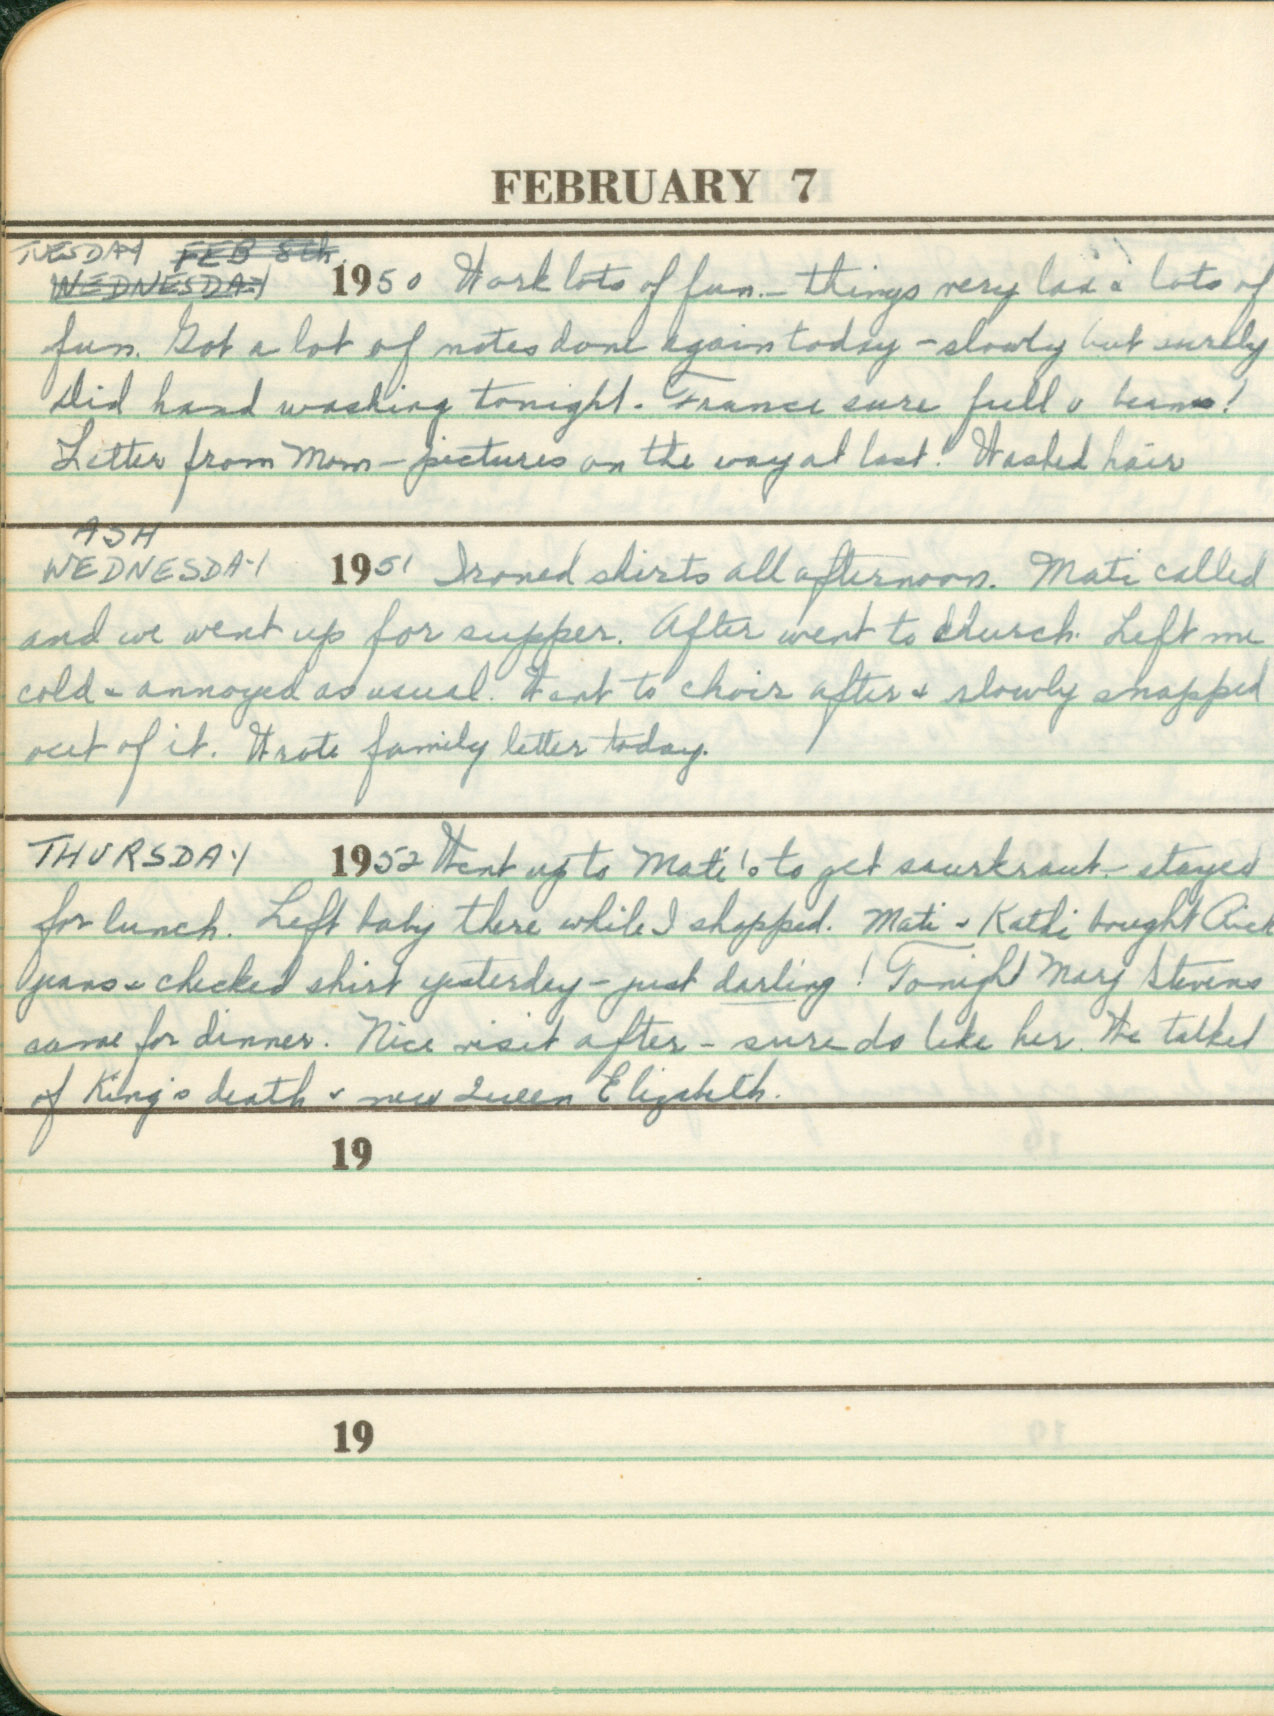 FEBRUARY 7
TUESDAY FEB 8th
WEDNESDAY 1950 Work lots of fun - things very lax & lots of
fun. Got a lot of notes done again today - slowly but surely
Did hand washing tonight. France sure full o beans!
Letter from Mom - pictures on the way at last! Washed hair
ASH
WEDNESDAY 1951 Ironed shirts all afternoon. Mati called
and we went up for supper. After went to church. Left me
cold & annoyed as usual. Went to choir after & slowly snapped
out of it. Wrote family letter today.
THURSDAY 1952 Went up to Mati's to get saurkraut - stayed
for lunch. Left baby there while I shopped. Mati & Kathi bought Rick
jeans & checked shirt yesterday - just darling! Tonight Marj Stevens
came for dinner. Nice visit after - sure do like her. We talked
of King's death & new Queen Elizabeth.
19
19